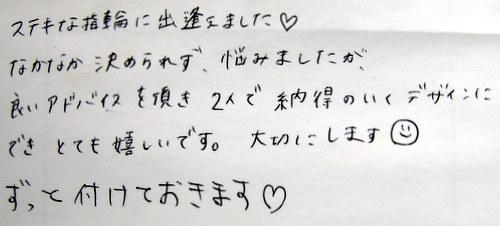 ステキな指輪に出逢えました♡
なかなか決められず、悩みましたが、
良いアドバイスを頂き 2人で納得のいくデザインに
でき とても嬉しいです。 大切にします☺
ずっと付けておきます♡